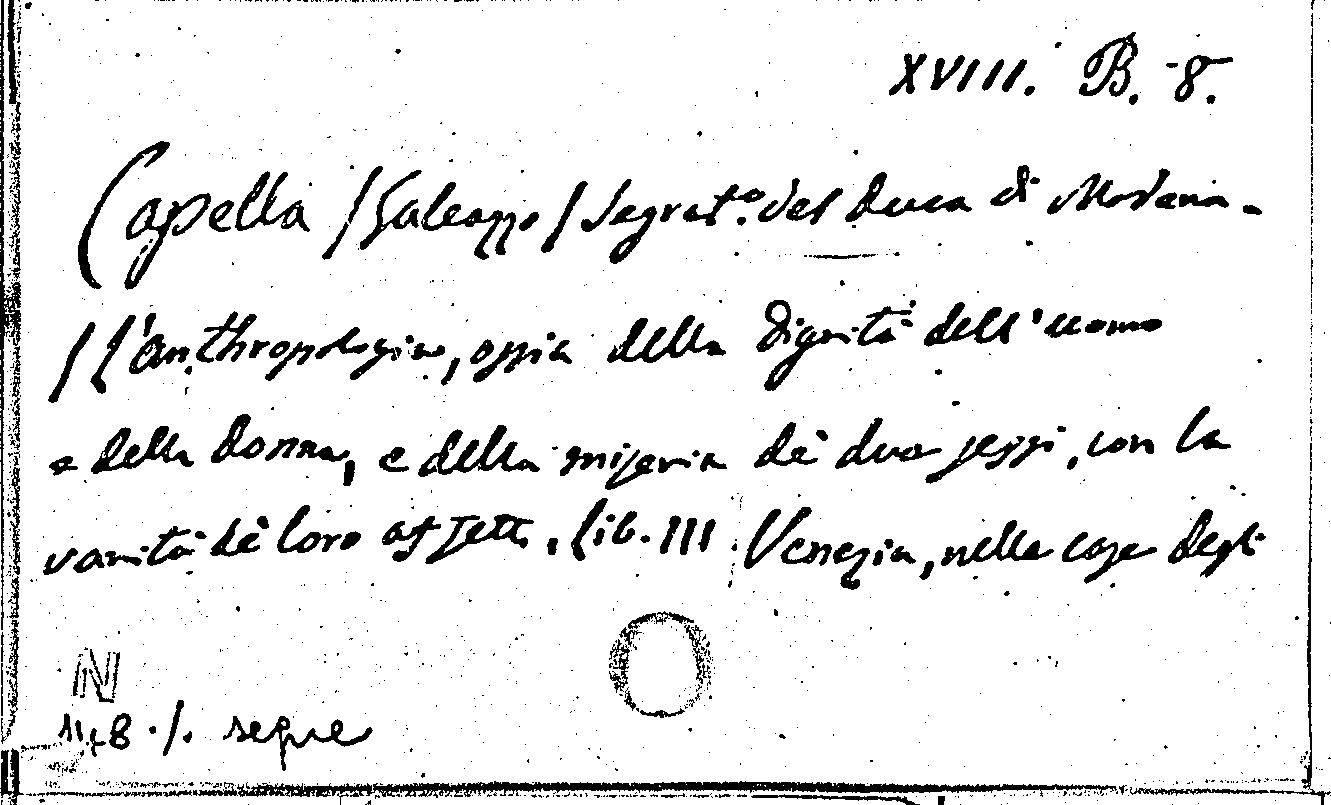 XVIII. B. 8.
Capella / Galeazzo / Segrat.º del Duca di Modena.
/ L'Anthropologia, ossia della Dignità dell'uomo
e della donna, e della miseria dè due sessi, con la
vanità dè loro affetti, Lib. III. Venezia, nelle case degli
N
1148 ./. segue